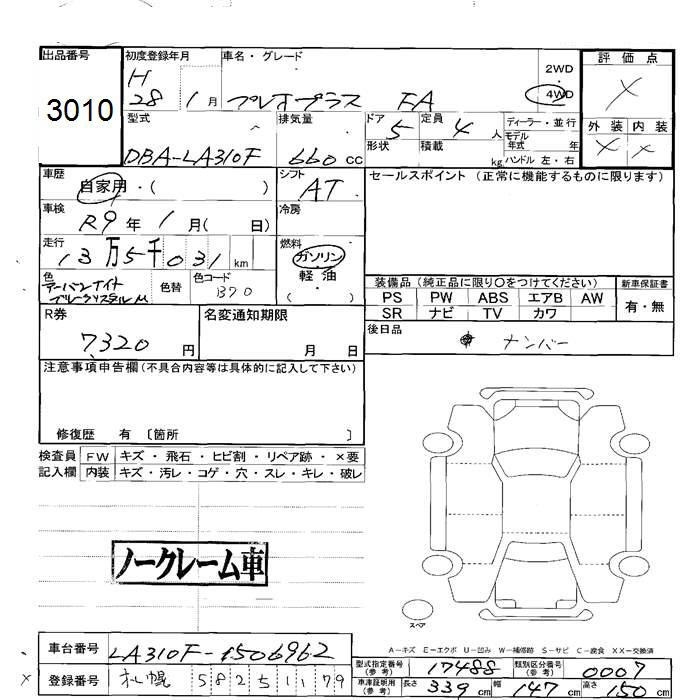 出品番号 初度登録年月 車名・グレード 2WD・4WD 評価点
3010 H28 1月 プレオプラス FA X
型式 排気量 ドア 定員 ディーラー・並行 外装 内装
DBA-LA310F 660CC 5 4人 モデル年式 年 X X
形状 積載 kg ハンドル 左・右
車歴 シフト セールスポイント (正常に機能するものに限ります)
自家用・( ) AT
車検 冷房
R9年 1月( 日)
走行 燃料
13万5千031km ガソリン
軽油・( )
色 色替 色コード 装備品 (純正品に限り○をつけてください) 新車保証書
アーバンナイトブルークリスタルμ B70 PS PW ABS エアB AW 有・無
SR ナビ TV カワ
R券 名変通知期限 後日品
7,320円 月 日 ナンバー
注意事項申告欄 (不具合内容等は具体的に記入して下さい)
修復歴 有 〔箇所 〕
検査員 FW キズ・飛石・ヒビ割・リペア跡・×要
記入欄 内装 キズ・汚レ・コゲ・穴・スレ・キレ・破レ
ノークレーム車
スペア
A-キズ E-エクボ U-凹み W-補修跡 S-サビ C-腐食 XX-交換済
車台番号 LA310F-1506962 型式指定番号(参考) 17488 類別区分番号(参考) 0007
X 登録番号 札幌 582 5 1179 車庫証明用(参考) 長さ 339cm 幅 147cm 高さ 150cm